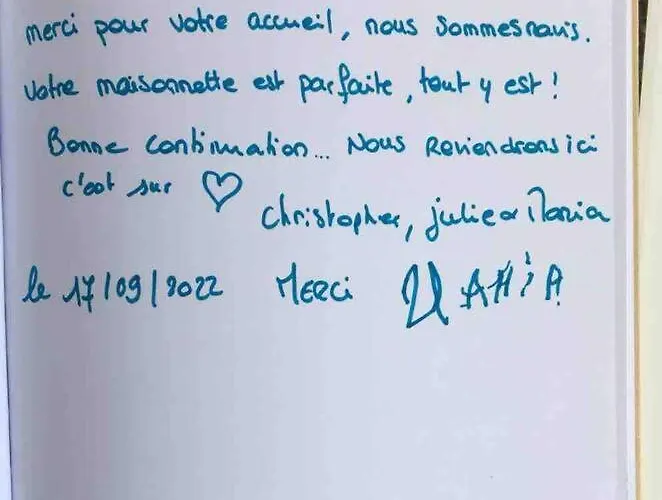 merci pour votre accueil, nous sommes ravis.
Votre maisonnette est parfaite, tout y est !
Bonne continuation... Nous Reviendrons ici
c'est sur ♡
Christopher, julie et Maria
le 17/09/2022 Merci